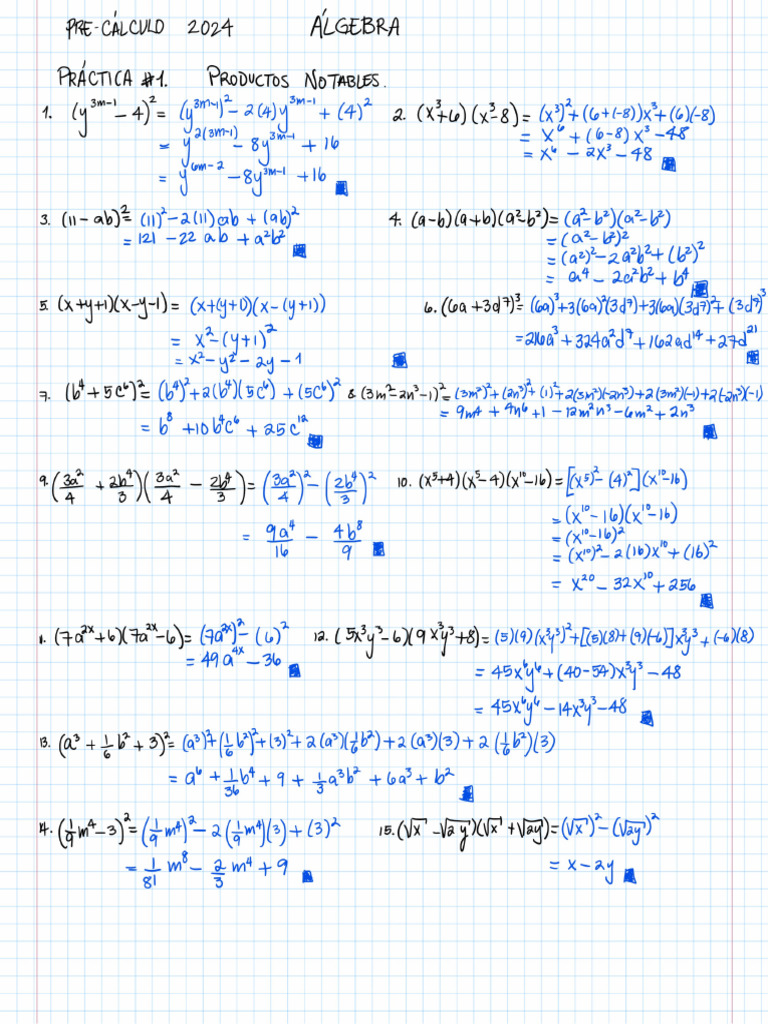 PRE-CÁLCULO 2024 ÁLGEBRA
PRÁCTICA #1. PRODUCTOS NOTABLES.
1. (y^{3m-1} - 4)^2 = (y^{3m-1})^2 - 2(4)y^{3m-1} + (4)^2
= y^{2(3m-1)} - 8y^{3m-1} + 16
= y^{6m-2} - 8y^{3m-1} + 16
2. (x^3+6)(x^3-8) = (x^3)^2 + (6+(-8))x^3 + (6)(-8)
= x^6 + (6-8)x^3 - 48
= x^6 - 2x^3 - 48
3. (11-ab)^2 = (11)^2 - 2(11)ab + (ab)^2
= 121 - 22ab + a^2b^2
4. (a-b)(a+b)(a^2-b^2) = (a^2-b^2)(a^2-b^2)
= (a^2-b^2)^2
= (a^2)^2 - 2a^2b^2 + (b^2)^2
= a^4 - 2a^2b^2 + b^4
5. (x+y+1)(x-y-1) = (x+(y+1))(x-(y+1))
= x^2 - (y+1)^2
= x^2 - y^2 - 2y - 1
6. (6a+3d^7)^3 = (6a)^3 + 3(6a)^2(3d^7) + 3(6a)(3d^7)^2 + (3d^7)^3
= 216a^3 + 324a^2d^7 + 162ad^{14} + 27d^{21}
7. (b^4+5c^6)^2 = (b^4)^2 + 2(b^4)(5c^6) + (5c^6)^2
= b^8 + 10b^4c^6 + 25c^{12}
8 (3m^2-2n^3-1)^2 = (3m^2)^2 + (2n^3)^2 + (1)^2 + 2(3m^2)(-2n^3) + 2(3m^2)(-1) + 2(-2n^3)(-1)
= 9m^4 + 4n^6 + 1 - 12m^2n^3 - 6m^2 + 2n^3
9. (3a^2/4 + 2b^4/3)(3a^2/4 - 2b^4/3) = (3a^2/4)^2 - (2b^4/3)^2
= 9a^4/16 - 4b^8/9
10. (x^5+4)(x^5-4)(x^{10}-16) = [(x^5)^2 - (4)^2](x^{10}-16)
= (x^{10}-16)(x^{10}-16)
= (x^{10}-16)^2
= (x^{10})^2 - 2(16)x^{10} + (16)^2
= x^{20} - 32x^{10} + 256
1. (7a^{2x}+6)(7a^{2x}-6) = (7a^{2x})^2 - (6)^2
= 49a^{4x} - 36
12. (5x^3y^3-6)(9x^3y^3+8) = (5)(9)(x^3y^3)^2 + [(5)(8)+(9)(-6)]x^3y^3 + (-6)(8)
= 45x^6y^6 + (40-54)x^3y^3 - 48
= 45x^6y^6 - 14x^3y^3 - 48
13. (a^3 + 1/6 b^2 + 3)^2 = (a^3)^2 + (1/6 b^2)^2 + (3)^2 + 2(a^3)(1/6 b^2) + 2(a^3)(3) + 2(1/6 b^2)(3)
= a^6 + 1/36 b^4 + 9 + 1/3 a^3b^2 + 6a^3 + b^2
14. (1/9 m^4 - 3)^2 = (1/9 m^4)^2 - 2(1/9 m^4)(3) + (3)^2
= 1/81 m^8 - 2/3 m^4 + 9
15. (√x - √2y)(√x + √2y) = (√x)^2 - (√2y)^2
= x - 2y